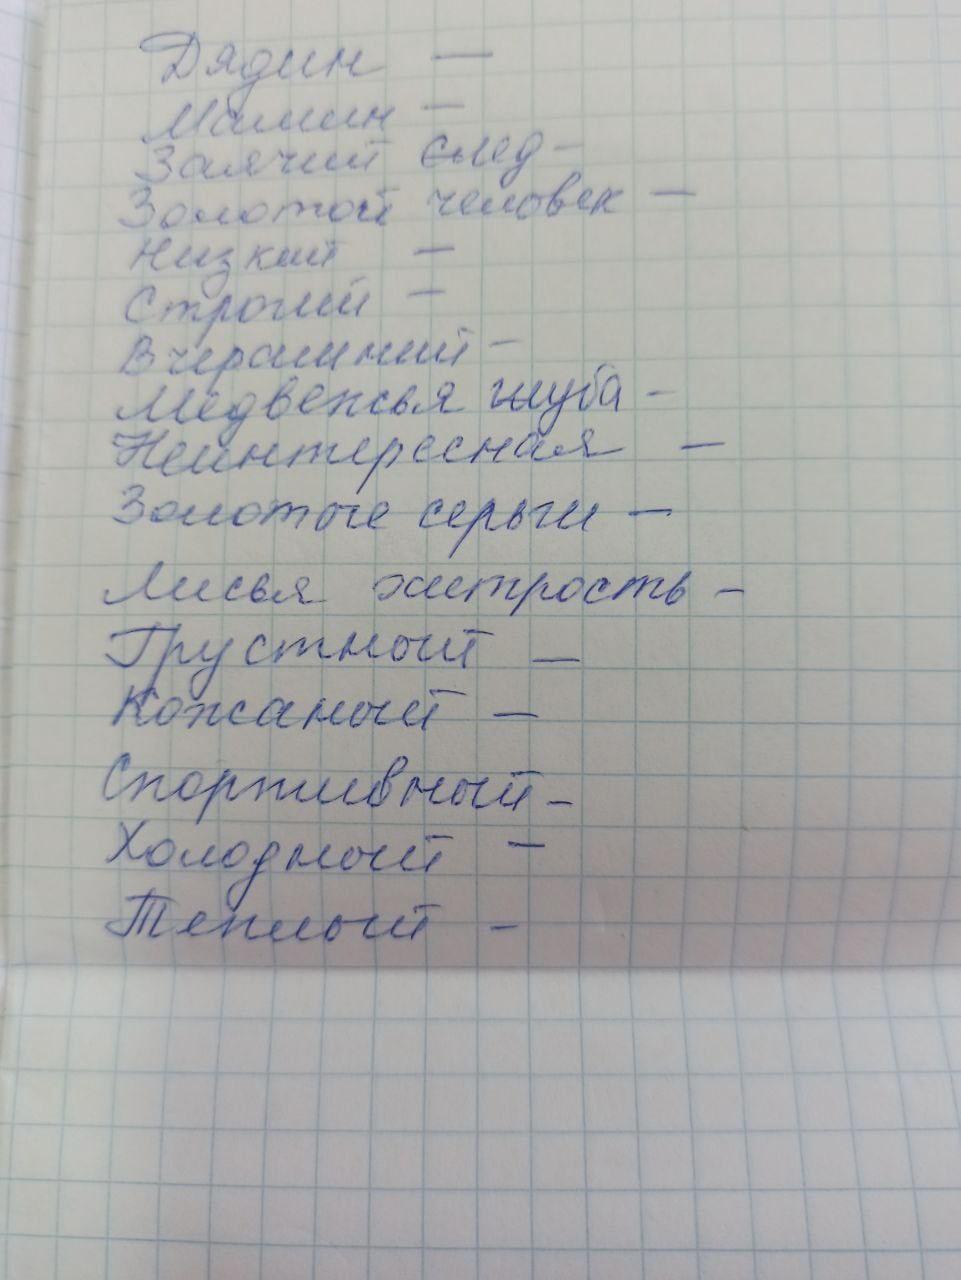 Дядин —
Мамин —
Заячий след –
Золотой человек —
Низкий —
Строгий —
Вчерашний –
Медвежья шуба –
Неинтересная —
Золотые серьги —
Лисья хитрость –
Грустный —
Кожаный —
Спортивный –
Холодный —
Теплый –